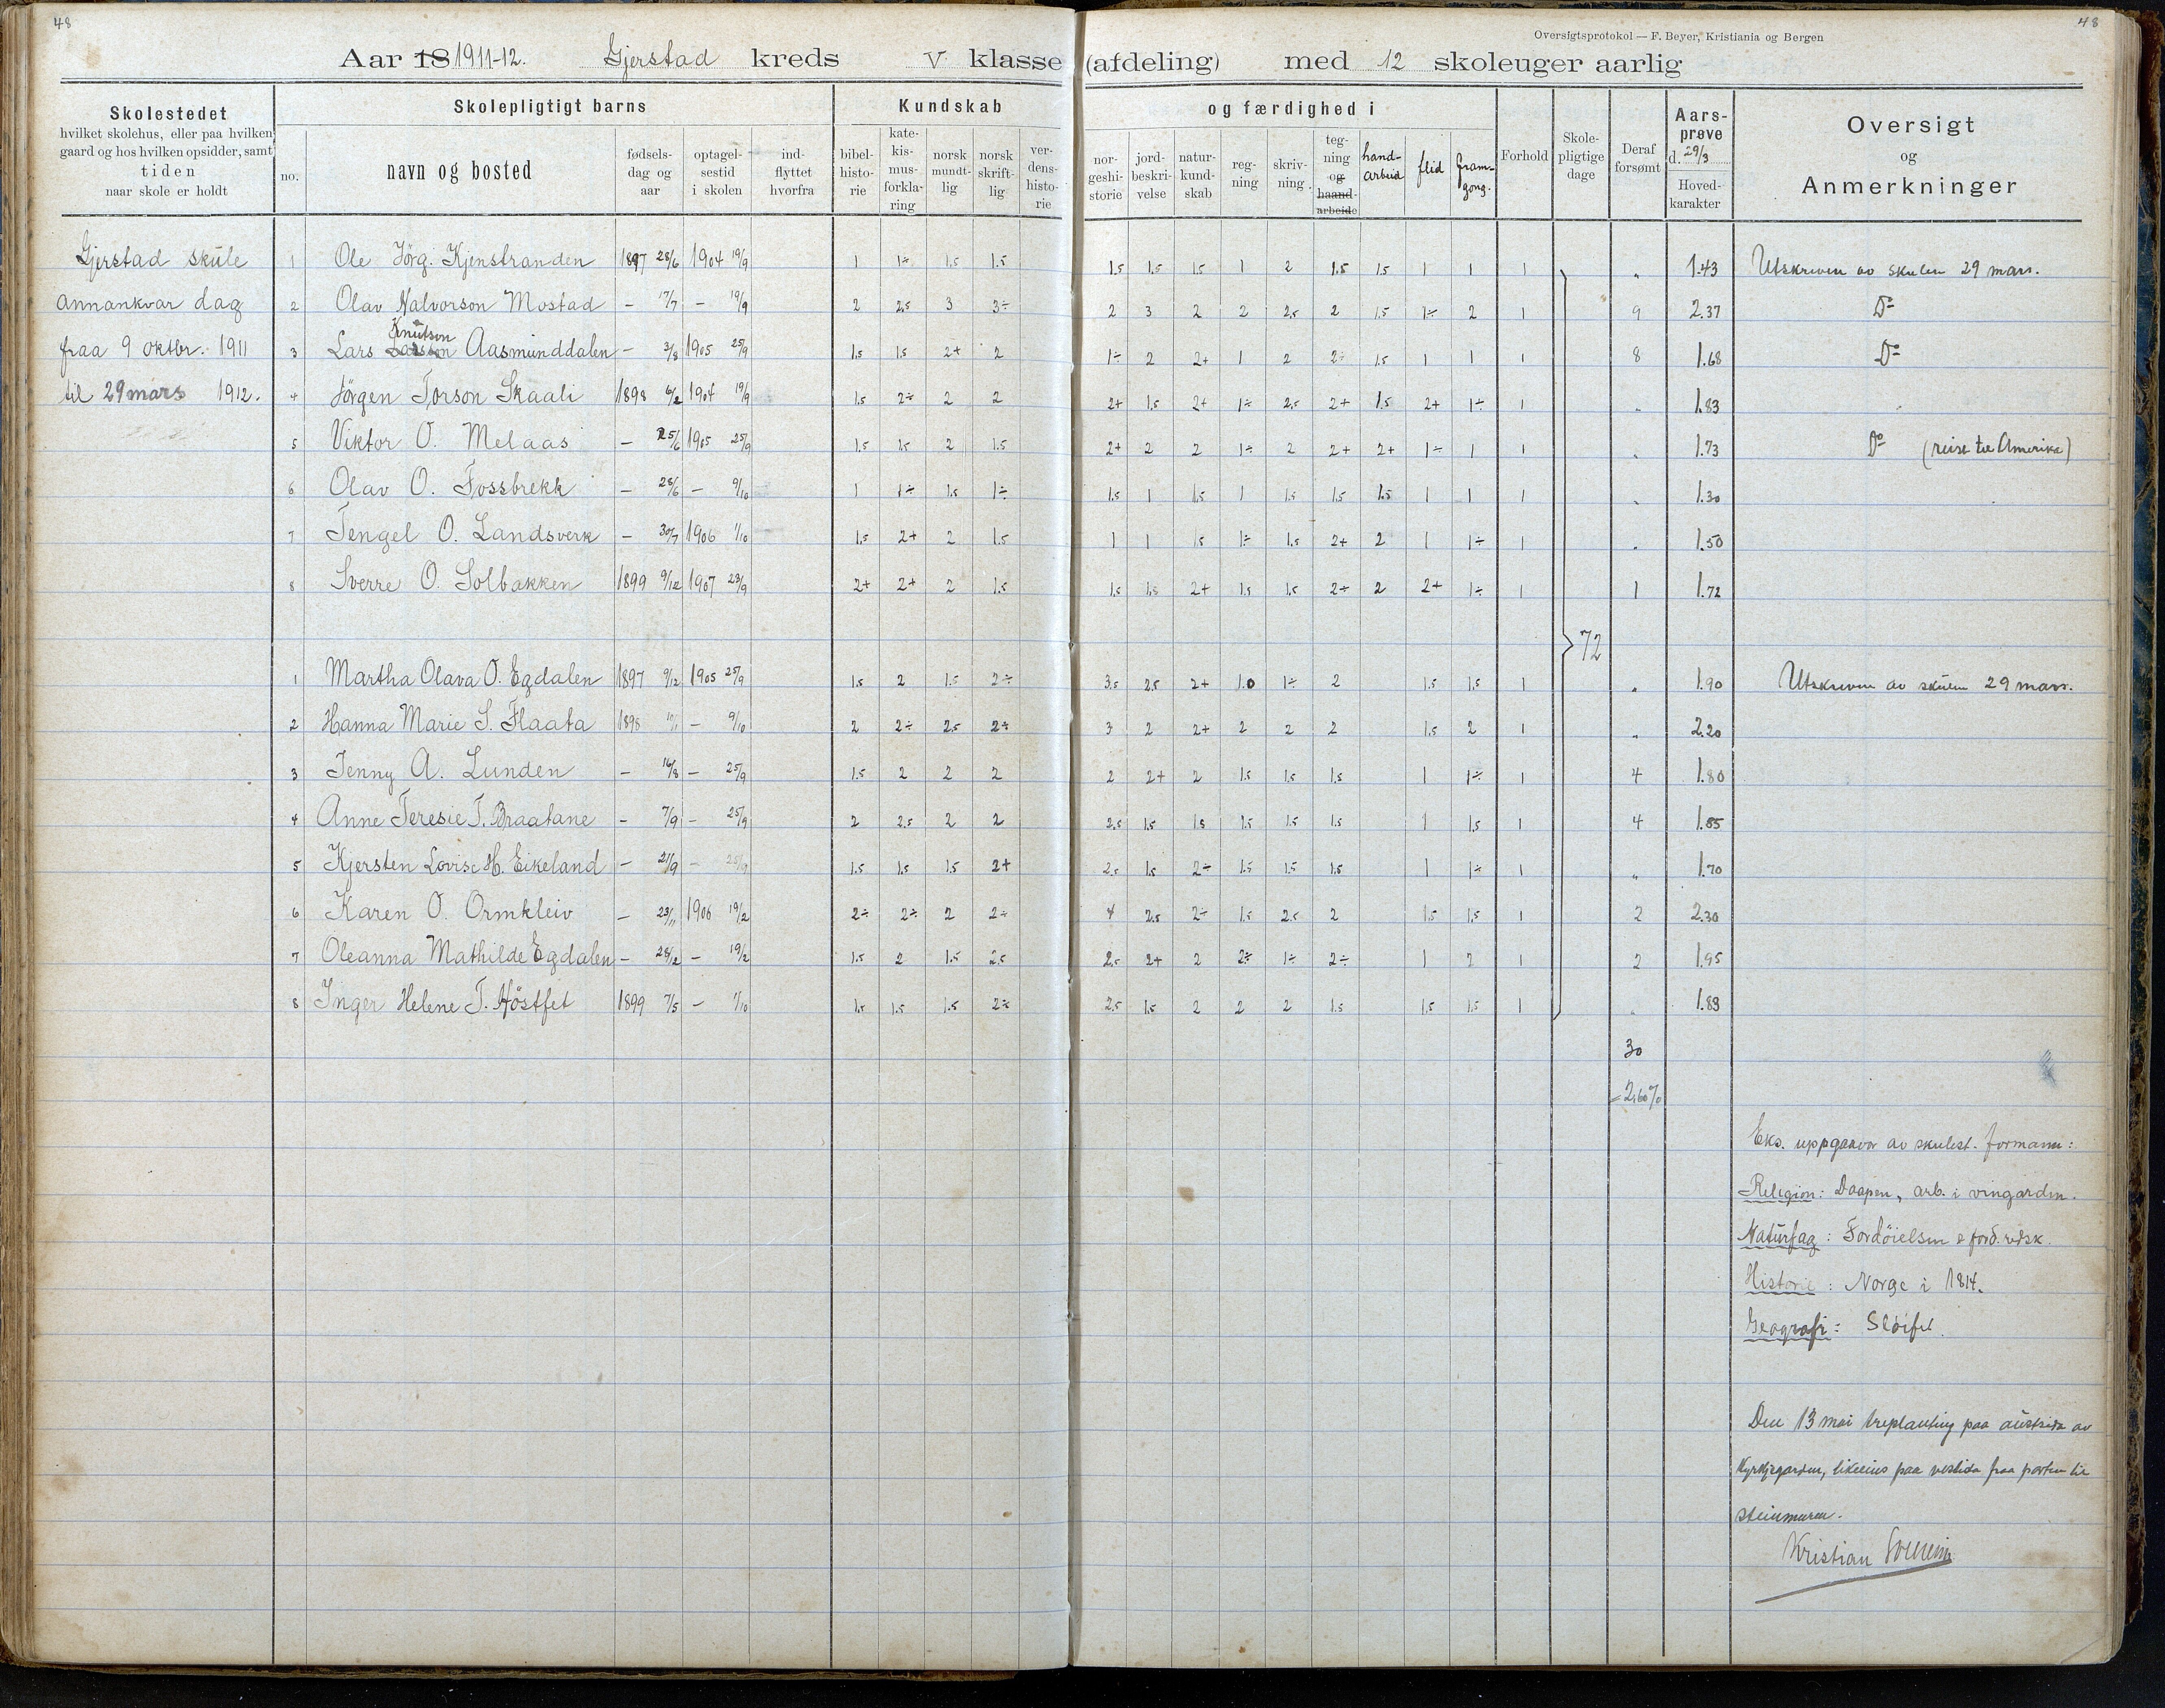 48
48
Oversigtsprotokol — F. Beyer, Kristiania og Bergen
Aar 18 1911-12. Gjerstad kreds V klasse (afdeling) med 12 skoleuger aarlig
Skolestedet
hvilket skolehus, eller paa hvilken
gaard og hos hvilken opsidder, samt
tiden
naar skole er holdt
Skolepligtigt barns
no.
navn og bosted
fødsels-
dag og
aar
optagel-
sestid
i skolen
ind-
flyttet
hvorfra
Kundskab
bibel-
histo-
rie
kate-
kis-
mus-
forkla-
ring
norsk
mundt-
lig
norsk
skrift-
lig
ver-
dens-
histo-
rie
og færdighed i
nor-
geshi-
storie
jord-
beskri-
velse
natur-
kund-
skab
reg-
ning
skriv-
ning.
teg-
ning
og
haand-
arbeide
hand-
arbeid
flid
fram-
gong.
Forhold
Skole-
pligtige
dage
Deraf
forsømt
Aars-
prøve
d. 29/3
Hoved-
karakter
Oversigt
og
Anmerkninger
Gjerstad skule 1 Ole Jörg. Kjenstranden 1897 28/6 1904 19/9 1 1÷ 1.5 1.5 1.5 1.5 1.5 1 2 1.5 1.5 1 1 1 „ 1.43 Utskriven av skulen 29 mars.
annankvar dag 2 Olav Halvorson Mostad – 17/7 – 19/9 2 2.5 3 3÷ 2 3 2 2 2.5 2 1.5 1÷ 2 1 9 2.37 Do
fraa 9 oktbr. 1911 3 Lars Larsson Knutson Aasmunddalen – 3/8 1905 25/9 1.5 1.5 2+ 2 1÷ 2 2+ 1 2 2÷ 1.5 1 1 1 8 1.68 Do
til 29 mars 1912. 4 Jörgen Torson Skaali 1898 6/2 1904 19/9 1.5 2÷ 2 2 2+ 1.5 2+ 1÷ 2.5 2+ 1.5 2+ 1÷ 1 „ 1.83
5 Viktor O. Melaas – 25/6 1905 25/9 1.5 1.5 2 1.5 2+ 2 2 1÷ 2 2+ 2+ 1÷ 1 1 „ 1.73 Do (reist til Amerika)
6 Olav O. Fossbrekk – 28/6 – 9/10 1 1÷ 1.5 1÷ 1.5 1 1.5 1 1.5 1.5 1.5 1 1 1 „ 1.30
7 Tengel O. Landsverk – 30/7 1906 1/10 1.5 2+ 2 1.5 1 1 1.5 1÷ 1.5 2+ 2 1 1÷ 1 „ 1.50
8 Sverre O. Solbakken 1899 9/12 1907 23/9 2+ 2+ 2 1.5 1.5 1.5 2+ 1.5 1.5 2÷ 2 2+ 1÷ 1 1 1.72
72
1 Martha Olava O. Egdalen 1897 9/12 1905 25/9 1.5 2 1.5 2÷ 3.5 2.5 2+ 1.0 1÷ 2 1.5 1.5 1 „ 1.90 Utskriven av skulen 29 mars.
2 Hanna Marie S. Flaata 1898 – 9/10 2 2÷ 2.5 2÷ 3 2 2+ 2 2 2 1.5 2 1 „ 2.20
3 Jenny A. Lunden – 16/8 – 25/9 1.5 2 2 2 2 2+ 2 1.5 1.5 1.5 1 1÷ 1 4 1.80
4 Anne Teresie T. Braatane – 7/9 – 25/9 2 2.5 2 2 2.5 1.5 1.5 1.5 1.5 1.5 1 1.5 1 4 1.85
5 Kjersten Lovise H. Eikeland – 21/9 – 25/9 1.5 1.5 1.5 2+ 2.5 1.5 2÷ 1.5 1.5 1.5 1 1÷ 1 „ 1.70
6 Karen O. Ormkleiv – 23/11 1906 19/2 2÷ 2÷ 2 2÷ 4 2.5 2÷ 1.5 2.5 2 1.5 1.5 1 2 2.30
7 Oleanna Mathilde Egdalen – 28/12 – 19/2 1.5 2 1.5 2.5 2.5 2+ 2 2÷ 1÷ 2÷ 1 2 1 2 1.95
8 Inger Helene T. Höstfet 1899 7/5 – 1/10 1.5 1.5 1.5 2÷ 2.5 1.5 2 2 2 1.5 1.5 1.5 1 „ 1.83
30
= 2,60%
Eks. uppgaavor av skulest. formann:
Religion: Daapen, arb. i vingarden.
Naturfag: Fordöielsen & ford.
Historie: Norge i 1814.
Geografi: Slöifet.
Den 13 mai treplanting paa austsida av
Kyrkjegarden, likeeins paa vestsida fraa porten til
steinmuren.
Kristian